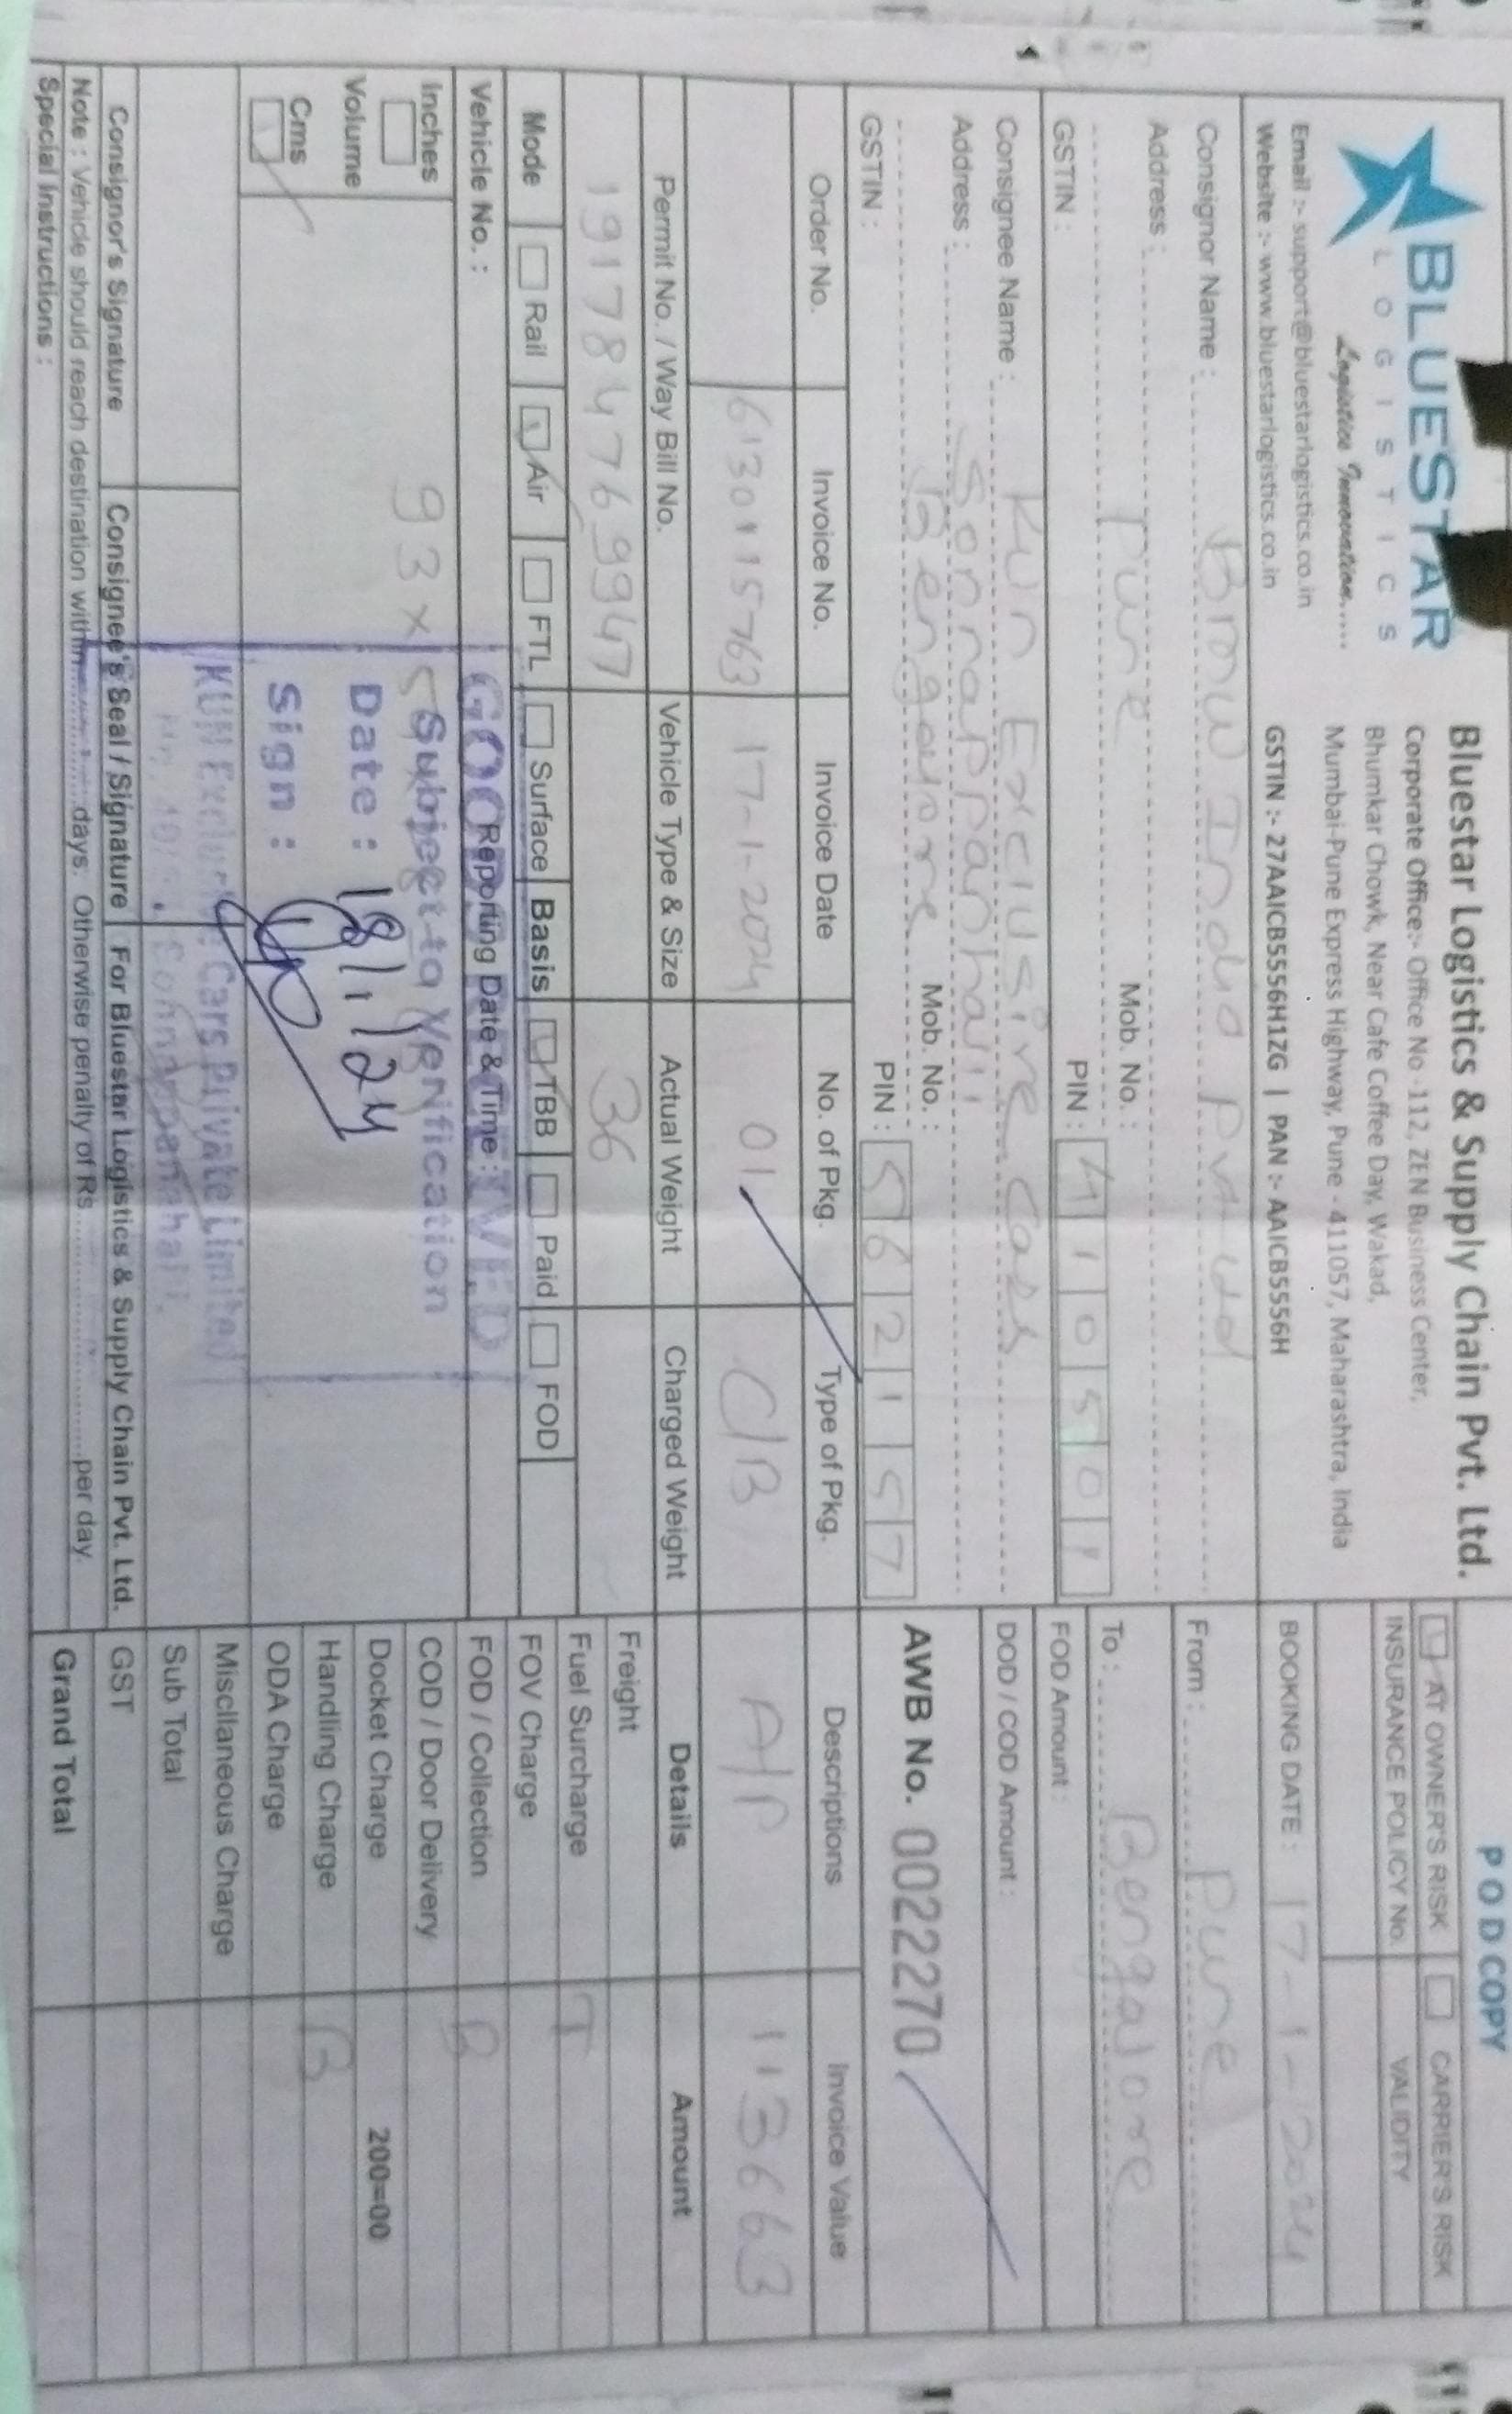 BLUESTAR
LOGISTICS
Logistics Innovation.....
Email :- support@bluestarlogistics.co.in
Website :- www.bluestarlogistics.co.in
Bluestar Logistics & Supply Chain Pvt. Ltd.
Corporate Office:- Office No -112, ZEN Business Center,
Bhumkar Chowk, Near Cafe Coffee Day, Wakad,
Mumbai-Pune Express Highway, Pune - 411057, Maharashtra, India
GSTIN :- 27AAICB5556H1ZG | PAN :- AAICB5556H
POD COPY
AT OWNER'S RISK CARRIER'S RISK
INSURANCE POLICY No. VALIDITY
BOOKING DATE : 17-1-2024
Consignor Name : BMW India Pvt Ltd
Address :
Pune Mob. No. :
GSTIN : PIN : 410501
From : Pune
To : Bengalore
FOD Amount :
DOD / COD Amount :
Consignee Name : KUN Exclusive Cars
Address : Sonnappanhalli
Bengalore Mob. No. :
GSTIN : PIN : 562157
AWB No. 0022270
Order No. Invoice No. Invoice Date No. of Pkg. Type of Pkg. Descriptions Invoice Value
6130115763 17-1-2024 01 C/B A/P 113663
Permit No. / Way Bill No. Vehicle Type & Size Actual Weight Charged Weight Details Amount
191784769947 36
Mode Rail Air FTL Surface Basis TBB Paid FOD
Vehicle No. : Reporting Date & Time :
Inches
Volume
Cms
93 x
GOODS RECEIVED
Subject to Verification
Date : 18/1/24
Sign :
KUN Exclusive Cars Private Limited
Freight
Fuel Surcharge T
FOV Charge
FOD / Collection B
COD / Door Delivery
Docket Charge 200=00
Handling Charge B
ODA Charge
Miscllaneous Charge
Sub Total
GST
Grand Total
Consignor's Signature Consignee's Seal / Signature For Bluestar Logistics & Supply Chain Pvt. Ltd.
Note : Vehicle should reach destination within days. Otherwise penalty of Rs per day.
Special Instructions :